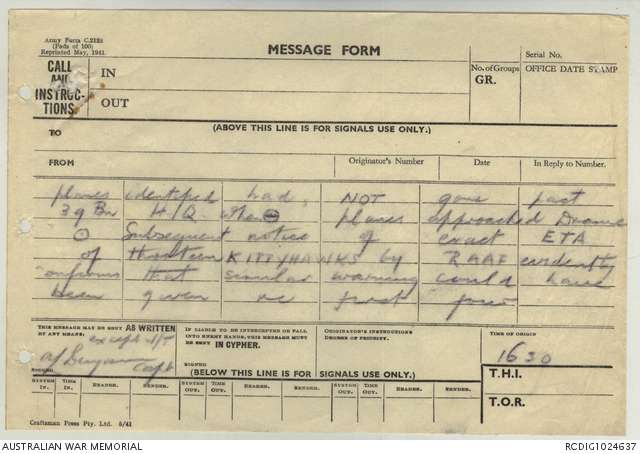 Army Form C.2128
(Pads of 100)
Reprinted May, 1941.
MESSAGE FORM
Serial No.
CALL AND INSTRUCTIONS
IN
OUT
No. of Groups
GR.
OFFICE DATE STAMP
(ABOVE THIS LINE IS FOR SIGNALS USE ONLY.)
TO
FROM
Originator's Number
Date
In Reply to Number.
planes identified had NOT gone past
39 Bn H.Q. when planes approached Drome
Subsequent notice of exact ETA
of thirteen KITTYHAWKS by RAAF evidently
confirms that similar warning could have
been given re first four
THIS MESSAGE MAY BE SENT AS WRITTEN
BY ANY MEANS.
except W/T
Capt
SIGNED
IF LIABLE TO BE INTERCEPTED OR FALL
INTO ENEMY HANDS, THIS MESSAGE MUST
BE SENT IN CYPHER.
SIGNED
ORIGINATOR'S INSTRUCTIONS
DEGREE OF PRIORITY.
TIME OF ORIGIN
1630
(BELOW THIS LINE IS FOR SIGNALS USE ONLY.)
T.H.I.
T.O.R.
SYSTEM IN. TIME IN. READER. SENDER. SYSTEM OUT. TIME OUT. READER. SENDER. SYSTEM OUT. TIME OUT. READER. SENDER.
Craftsman Press Pty. Ltd. 6/41
AUSTRALIAN WAR MEMORIAL
RCDIG1024637